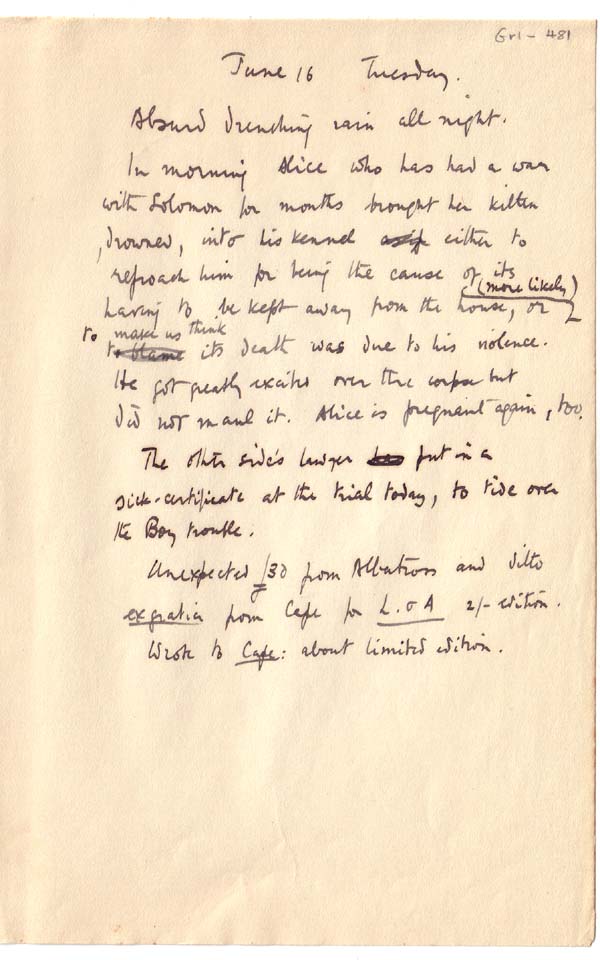 Gr1 - 481
June 16 Tuesday.
Absurd drenching rain all night.
In morning Alice who has had a war
with Solomon for months brought her kitten
, drowned, into his kennel asif either to
reproach him for being the cause of its
(more likely)
having to be kept away from the house, or
to make us think
to blame its death was due to his violence.
He got greatly excited over the corpse but
did not maul it. Alice is pregnant again, too.
The other side's lawyer has put in a
sick-certificate at the trial today, to tide over
the Boy trouble.
Unexpected £30 from Albatross and ditto
exgratia from Cape for L. & A 2/- edition.
Wrote to Cape: about limited edition.